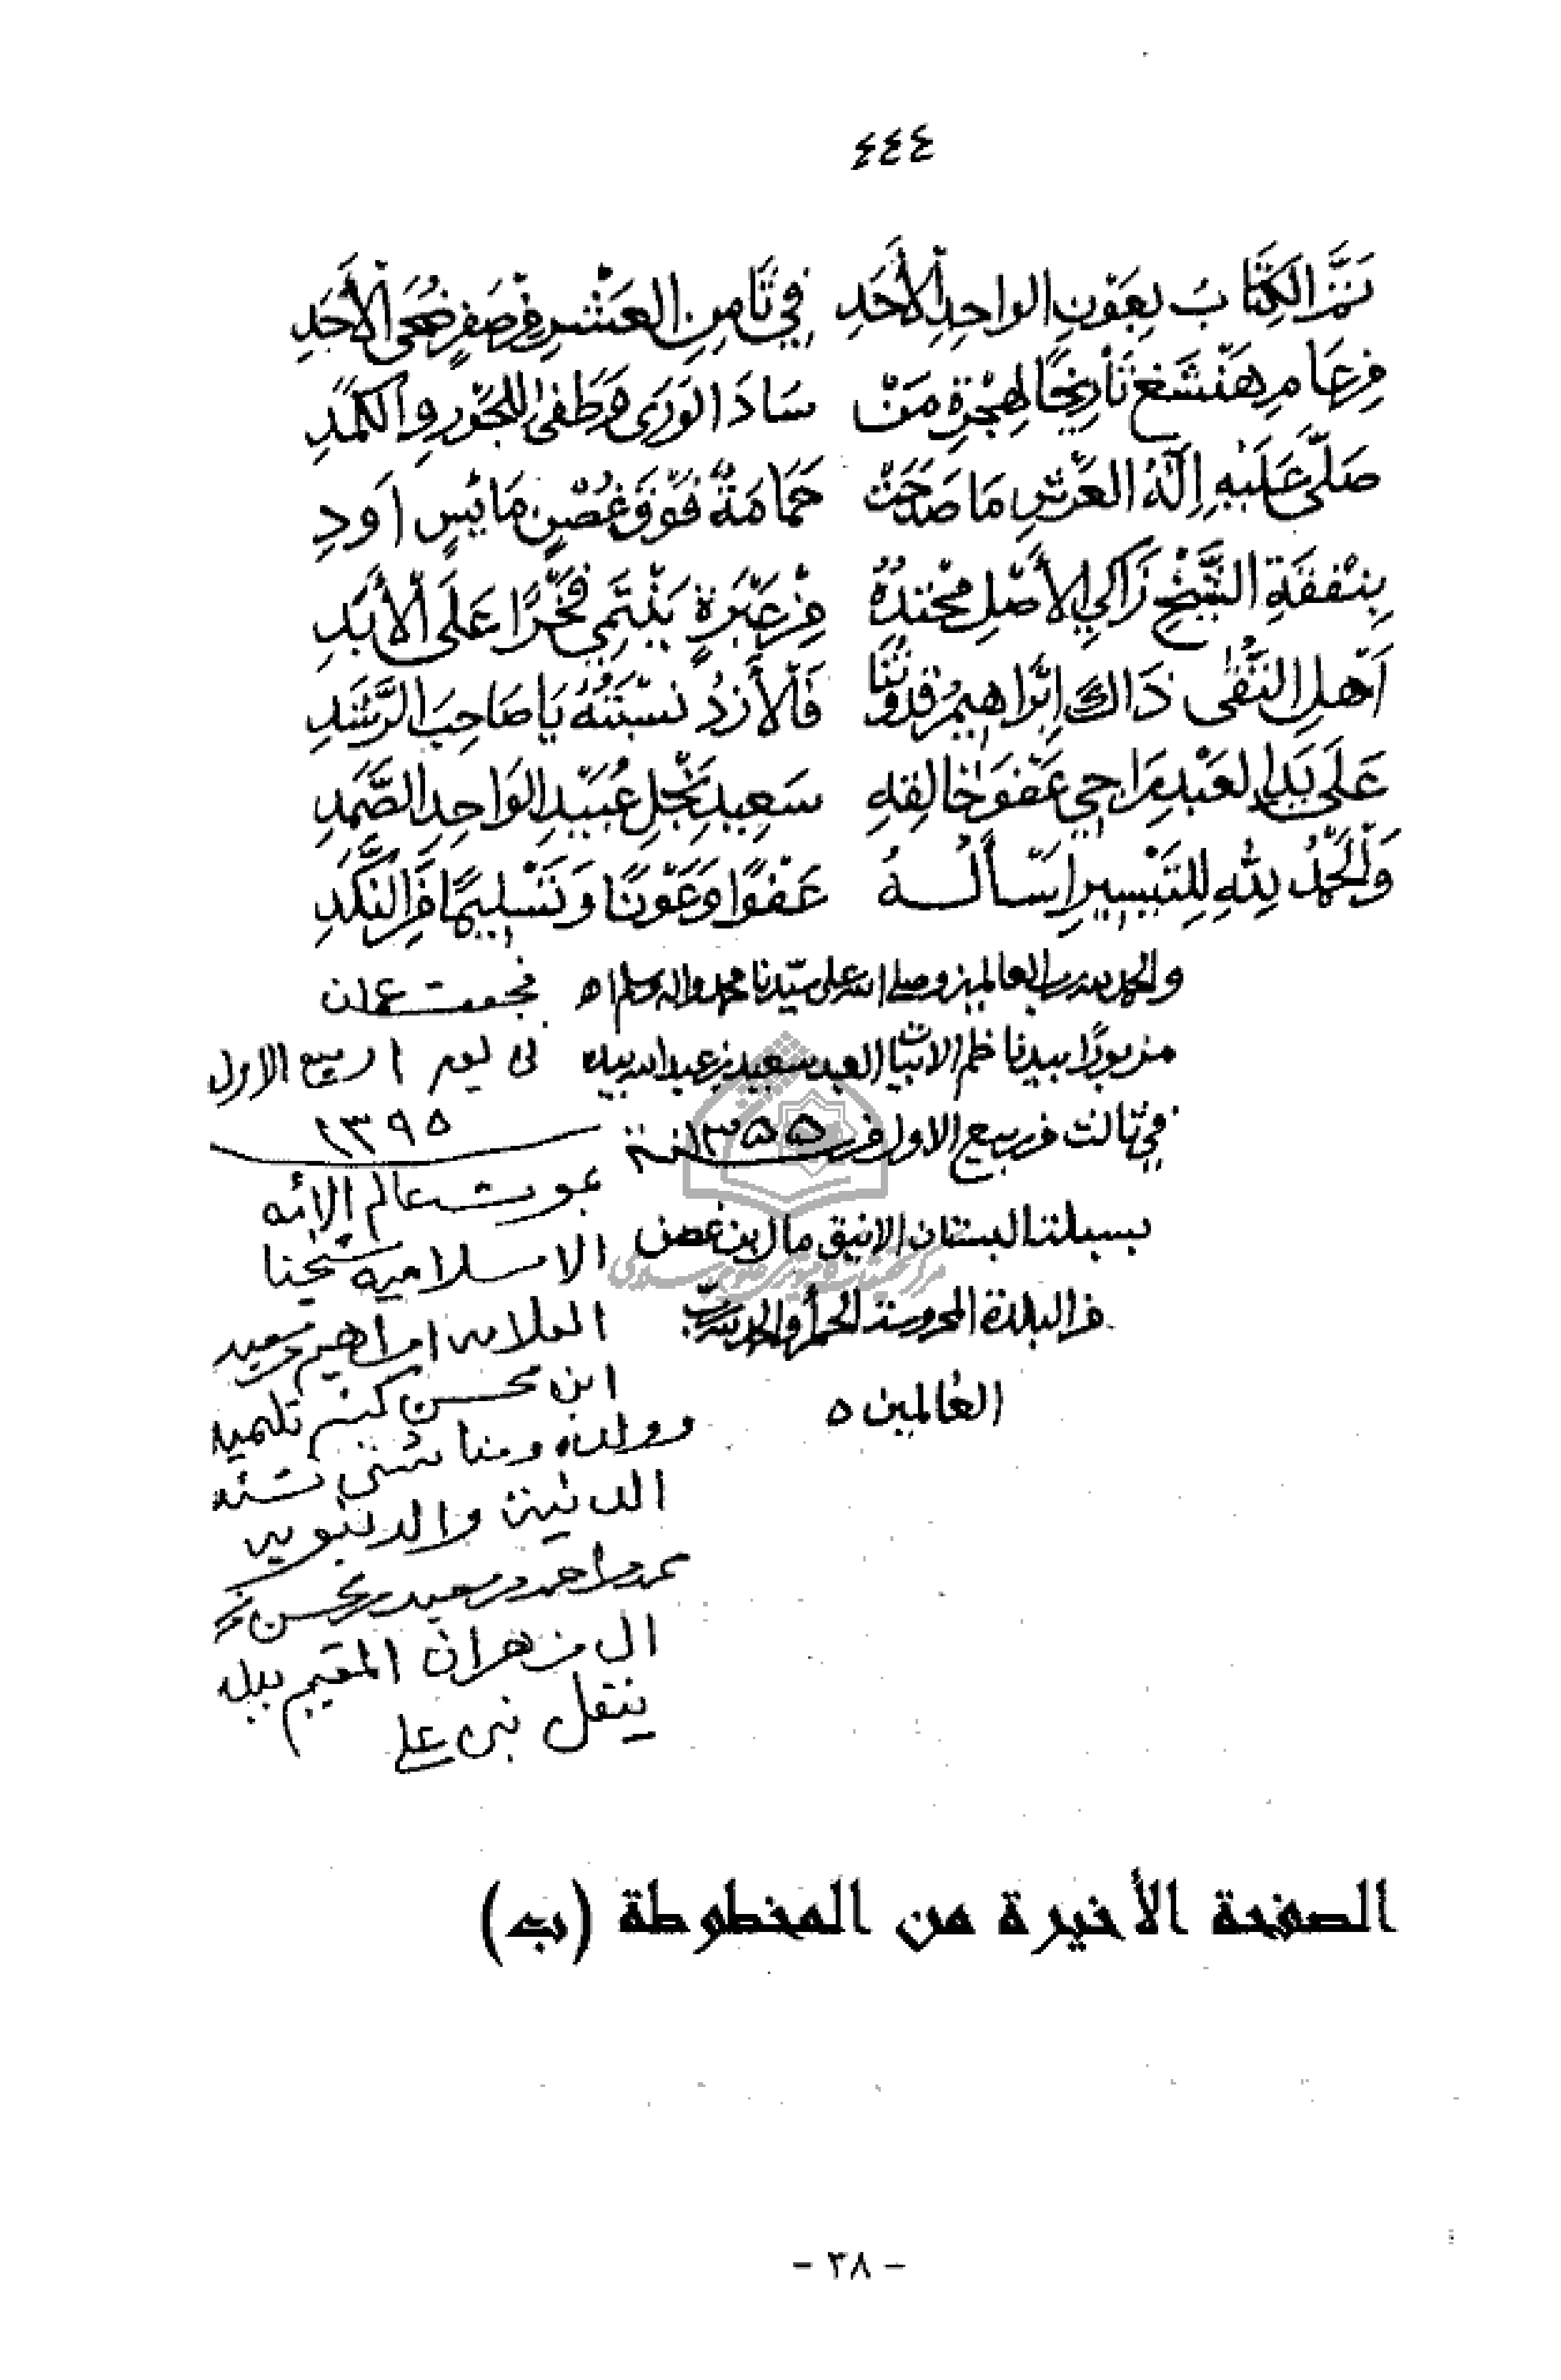 ٤٤٤
تَمَّ الكِتَابُ بِعَوْنِ الواحِدِ الأَحَدِ في ثَامِنِ العَشْرِ مِنْ صَفَرٍ ضُحَى الأَحَدِ
مِن عَامِ هَنْشَغٍ تَأْرِيخًا لِهِجْرَةِ مَنْ سَادَ الوَرَى وَطَفَى لِلجَوْرِ والكَمَدِ
صَلَّى عَلَيْهِ إِلَهُ العَرْشِ مَا صَدَحَتْ حَمَامَةٌ فَوْقَ غُصْنٍ مَائِسٍ أَوِدِ
بِنَفَقَةِ الشَّيْخِ زَاكِي الأَصْلِ مَحْتِدُهُ مِنْ عَبْرَةٍ يَنْتَمِي فَخْرًا عَلَى الأَبَدِ
أَهْلِ التُّقَى ذَاكَ إِبْرَاهِيمُ قُدْوَتُنَا فَالأَزْدُ نِسْبَتُهُ يَا صَاحِبَ الرَّشَدِ
عَلَى يَدِ العَبْدِ رَاجِي عَفْوَ خَالِقِهِ سَعِيدِ نَجْلِ عُبَيْدِ الوَاحِدِ الصَّمَدِ
وَالحَمْدُ لِلَّهِ لِلتَّيْسِيرِ أَسْأَلُهُ عَفْوًا وَعَوْنًا وَتَسْلِيمًا مِنَ النَّكَدِ
والحمد لله رب العالمين وصلى الله على سيدنا محمد واله وسلم اه
مزبورًا بيد ناظم الابيات العبد سعيد بن عبد الله بيده
في ثالث من ربيع الاول من سنة ١٣٥٥
البستان الانيق مال بن غصن
من البلدة المحروسة الحمرا والحمد لله رب
العالمين ه
فجعت عمان
في يوم ١ ربيع الاول
١٣٩٥
بموت عالم الائمه
الاسلاميه شيخنا
العلامه ابراهيم بن سعيد
ابن محسن تلميذ
وولده
الدينية والدنيويه
بن احمد بن سعيد بن محسن
المقيم ببلد
علي
الصفحة الأخيرة من المخطوطة (ب)
- ٣٨ -